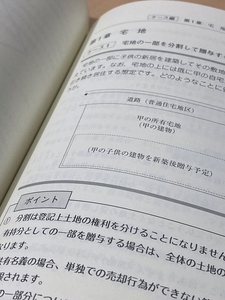 ケース編　第1章　宅
第1章　宅　地
ケース1　宅地の一部を分割して贈与す
地の一部に子供の新居を建築してその敷地
ます。なお、宅地の上には既に甲の自宅
き続き居住する想定です。どのようなことに
道路（普通住宅地区）
甲の所有宅地
（甲の建物）
（甲の子供の建物を新築後贈与予定）
ポイント
① 分割は登記上土地の権利を分けることになりません
有持分としての一部を贈与する場合は、全体の土地の
なります。
共有名義の場合、単独での売却行為ができない
報されます。
の部分につい